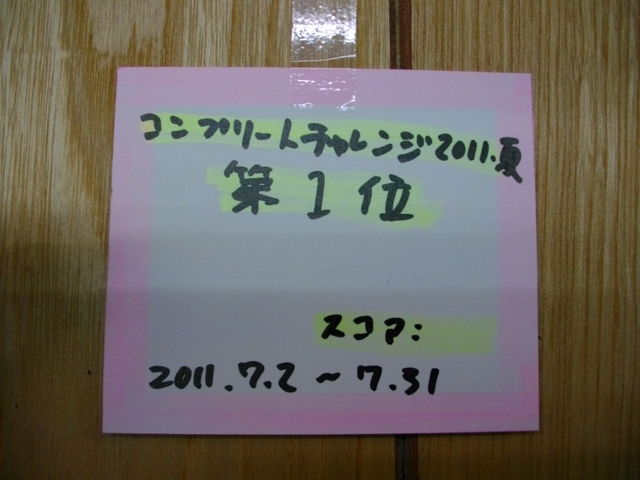 コンプリートチャレンジ2011.夏
第1位
スコア:
2011.7.2～7.31